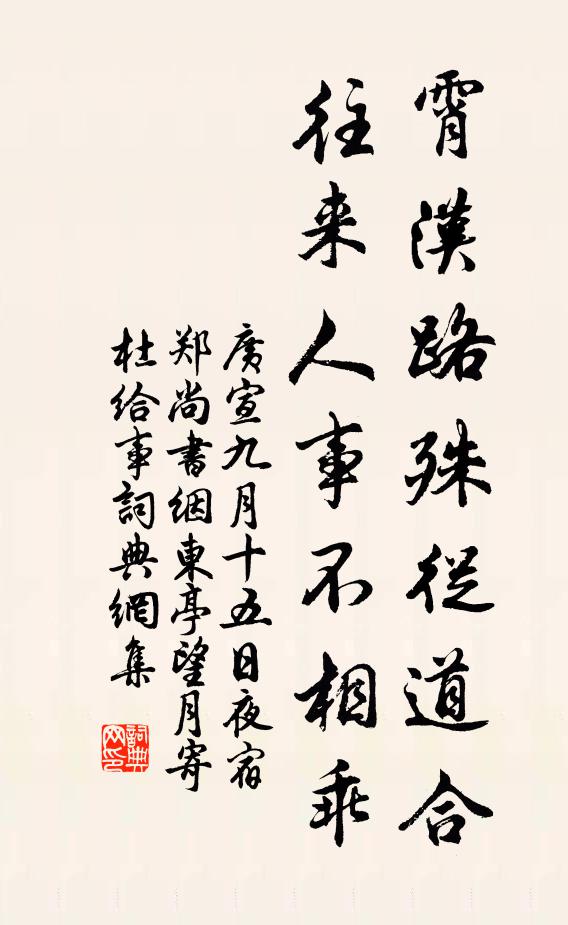 霄漢路殊從道合
往来人事不相乖
廣宣九月十五日夜宿
郑尚書絪東亭望月寄
杜给事詞典網集
詞典网印